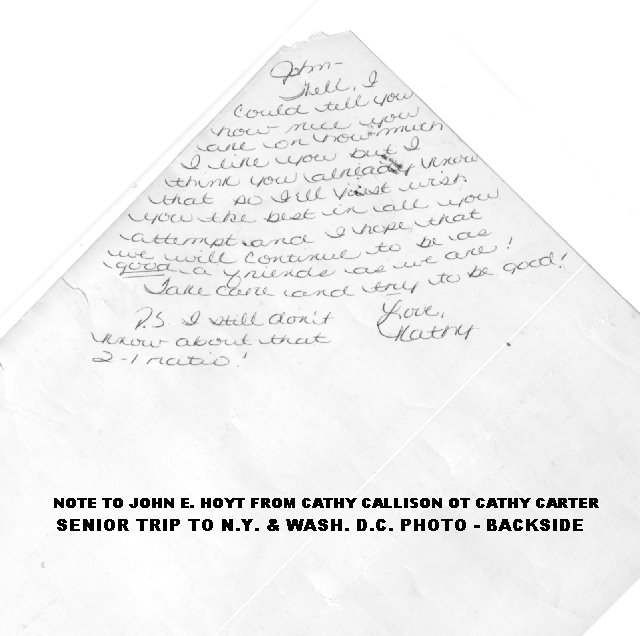 John-
Well, I
could tell you
how nice you
are or how much
I like you but I
think you already know
that so I'll just wish
you the best in all you
attempt and I hope that
we will continue to be as
good a friends as we are!
Take care and try to be good!
Love,
Kathy
P.S. I still don't
know about that
2-1 ratio!
NOTE TO JOHN E. HOYT FROM CATHY CALLISON OT CATHY CARTER
SENIOR TRIP TO N.Y. & WASH. D.C. PHOTO - BACKSIDE